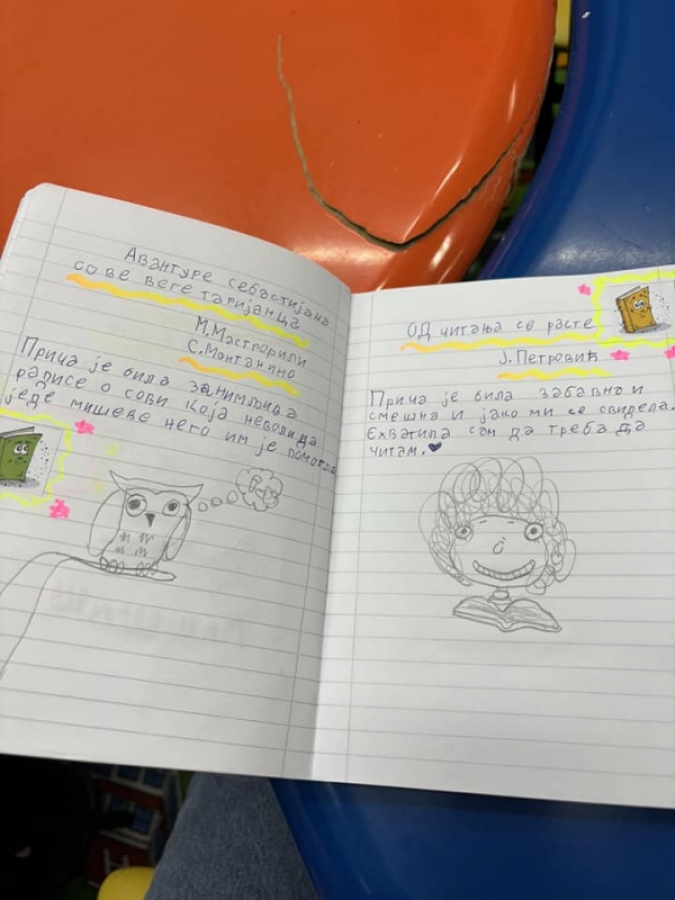 Авантуре себастијана
сове вегетаријанца
М.Мастворили
С.Монтанино
Прича је била занимљива
радисе о сови која неволи да
једе мишеве него им је помогла
ОД читања се расте
Ј. Петровић
Прича је била забавно и
смешна и јако ми се свидела.
Схватила сам да треба да
читам.